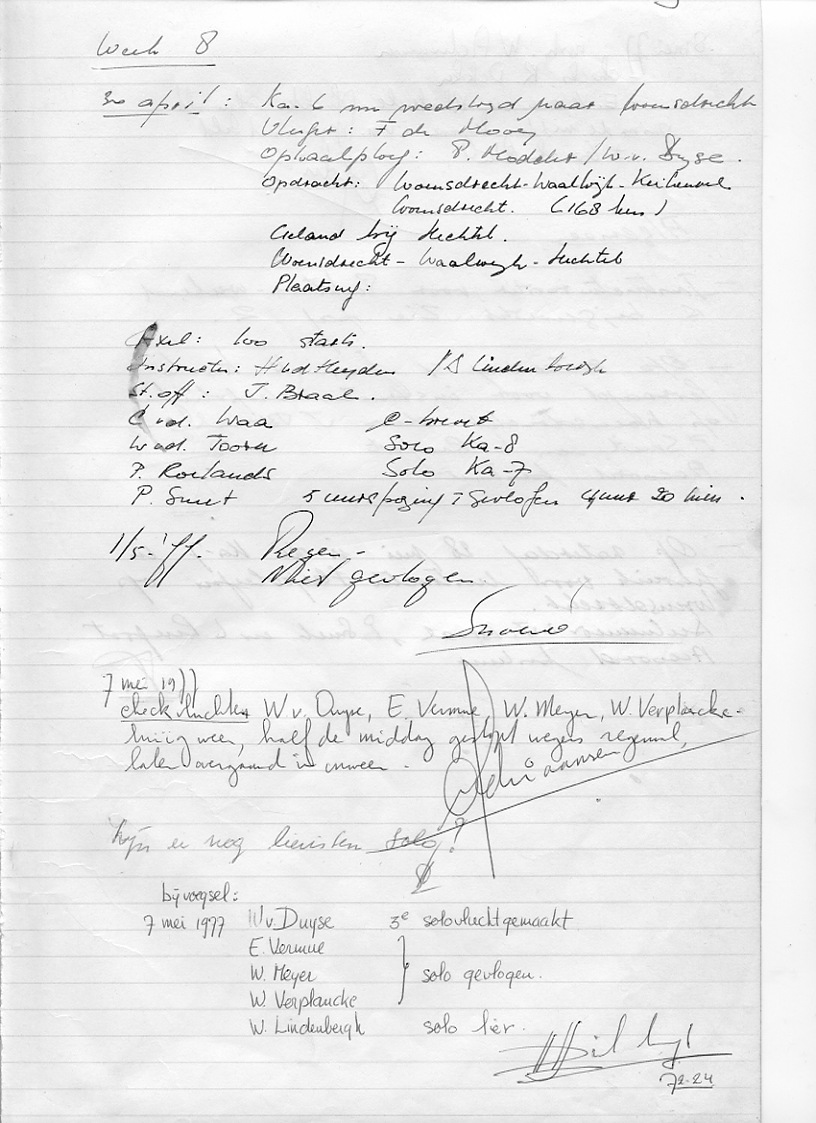 Week 8
30 april: Ka-6 mm wedstrijd naar Woensdrecht
Vlieger: F de Mooy
Ophaalploeg: P. / W.v. Duyse.
Opdracht: Woensdrecht-Waalwijk-Keiheuvel
Woensdrecht. (168 km)
Geland bij Hechtel.
Woensdrecht-Waalwijk-Hechtel
Plaatsing:
Axel: 100 starts.
Instructer: H v d Heyden / Lindenbergh
St. off: J. Braal.
C vd. Waa C-brevet
W vd. Toorn Solo Ka-8
P. Roelands Solo Ka-7
P. Smet 5 uurspoging: Gevlogen 4 uur 20 min.
1/5-'77. Regen-
Niet gevlogen.
7 mei 1977
checkvluchten W v. Duyse, E. Vermue, W. Meyer, W. Verplancke-
weer, half de middag gestopt wegens regenval,
later overgaand in onweer.
Zijn er nog lieristen solo?
bijvoegsel:
7 mei 1977 W v. Duyse 3e solovlucht gemaakt
E. Vermue
W. Meyer solo gevlogen.
W Verplancke
W. Lindenbergh solo lier.
72-24